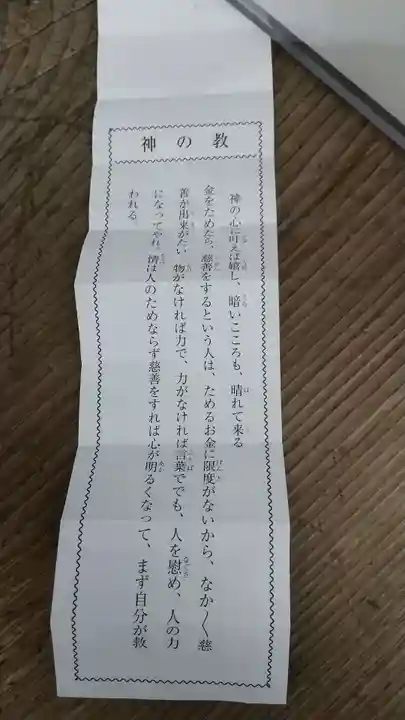 神の教
神の心に叶えば嬉し、暗いこころも、晴れて来る
金をためたら、慈善をするという人は、ためるお金に限度がないから、なか〱慈
善が出来がたい 物がなければ力で、力がなければ言葉ででも、人を慰め、人の力
になってやれ。情は人のためならず慈善をすれば心が明るくなって、まず自分が救
われる。